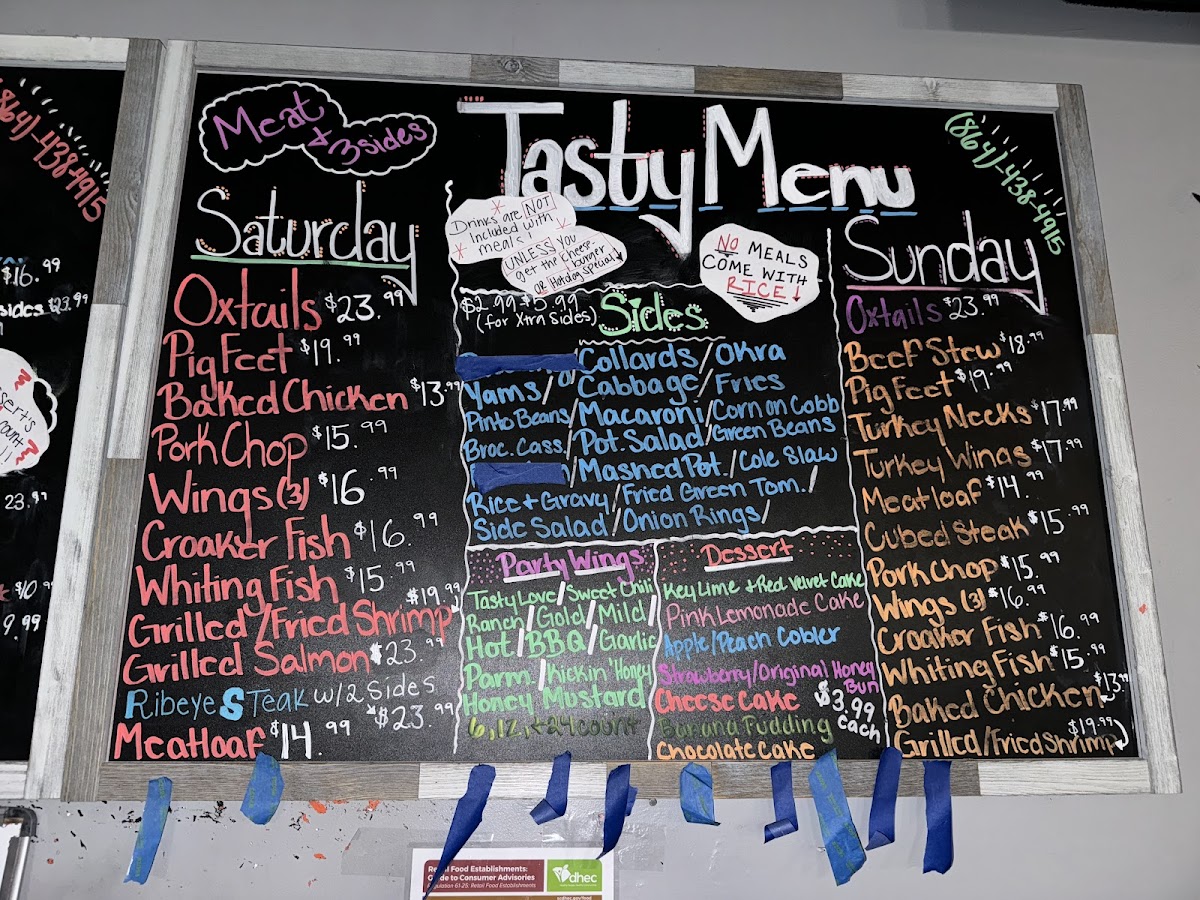 (864)-438-4915
$16.99
sides $23.99
count
23.99
$10.99
9.99
Meat
& 3 sides
Tasty Menu
(864)-438-4915
Saturday
Oxtails $23.99
Pig Feet $19.99
Baked Chicken $13.99
Pork Chop $15.99
Wings (3) $16.99
Croaker Fish $16.99
Whiting Fish $15.99
Grilled/Fried Shrimp $19.99
Grilled Salmon $23.99
Ribeye Steak w/2 Sides
$23.99
Meatloaf $14.99
Drinks are NOT
included with
meals!
UNLESS you
get the Cheese-
burger
OR Hotdog Special
NO MEALS
COME WITH
RICE!
$2.99-$5.99
(for Xtra Sides)
Sides
Collards/Okra
Yams/ Cabbage/Fries
Pinto Beans/Macaroni/Corn on Cobb
Broc. Cass./Pot. Salad/Green Beans
/Mashed Pot./Cole Slaw
Rice + Gravy/Fried Green Tom./
Side Salad/Onion Rings/
Party Wings
Tasty Love/Sweet Chili
Ranch/Gold/Mild/
Hot/BBQ/Garlic
Parm./Kickin' Honey
Honey Mustard
6, 12, + 24 count
Dessert
Key Lime + Red Velvet Cake
Pink Lemonade Cake
Apple/Peach Cobler
Strawberry/Original Honey
Bun
Cheese Cake
Banana Pudding
Chocolate Cake
$3.99
each
Sunday
Oxtails $23.99
Beef Stew $18.99
Pig Feet $19.99
Turkey Necks $17.99
Turkey Wings $17.99
Meatloaf $14.99
Cubed Steak $15.99
Pork Chop $15.99
Wings (3) $16.99
Croaker Fish $16.99
Whiting Fish $15.99
Baked Chicken $13.99
Grilled/Fried Shrimp $19.99
Food Establishments:
Guide to Consumer Advisories
Regulation 61-25: Retail Food Establishments
dhec